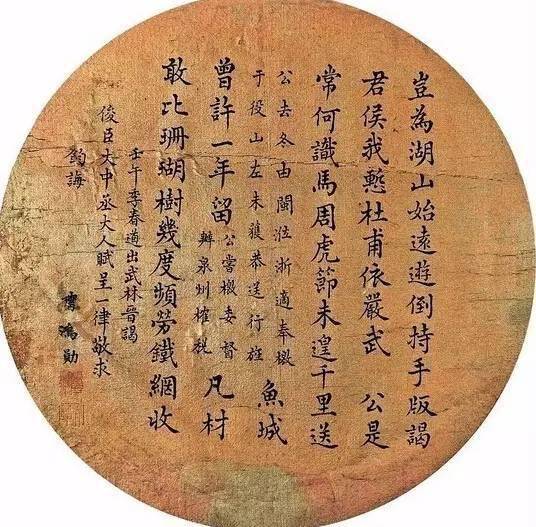 豈為湖山始遠遊倒持手版謁
君侯我慙杜甫依嚴武 公是
常何識馬周虎節未遑千里送
公去冬由閩涖浙適奉檄
于役山左未獲恭送行旌
魚城
曾許一年留
公嘗檄委督
辦泉州榷稅
凡材
敢比珊瑚樹幾度頻勞鐵網收
壬午季春道出武林晉謁
俊臣大中丞大人賦呈一律敬求
鈞誨
曹鴻勛